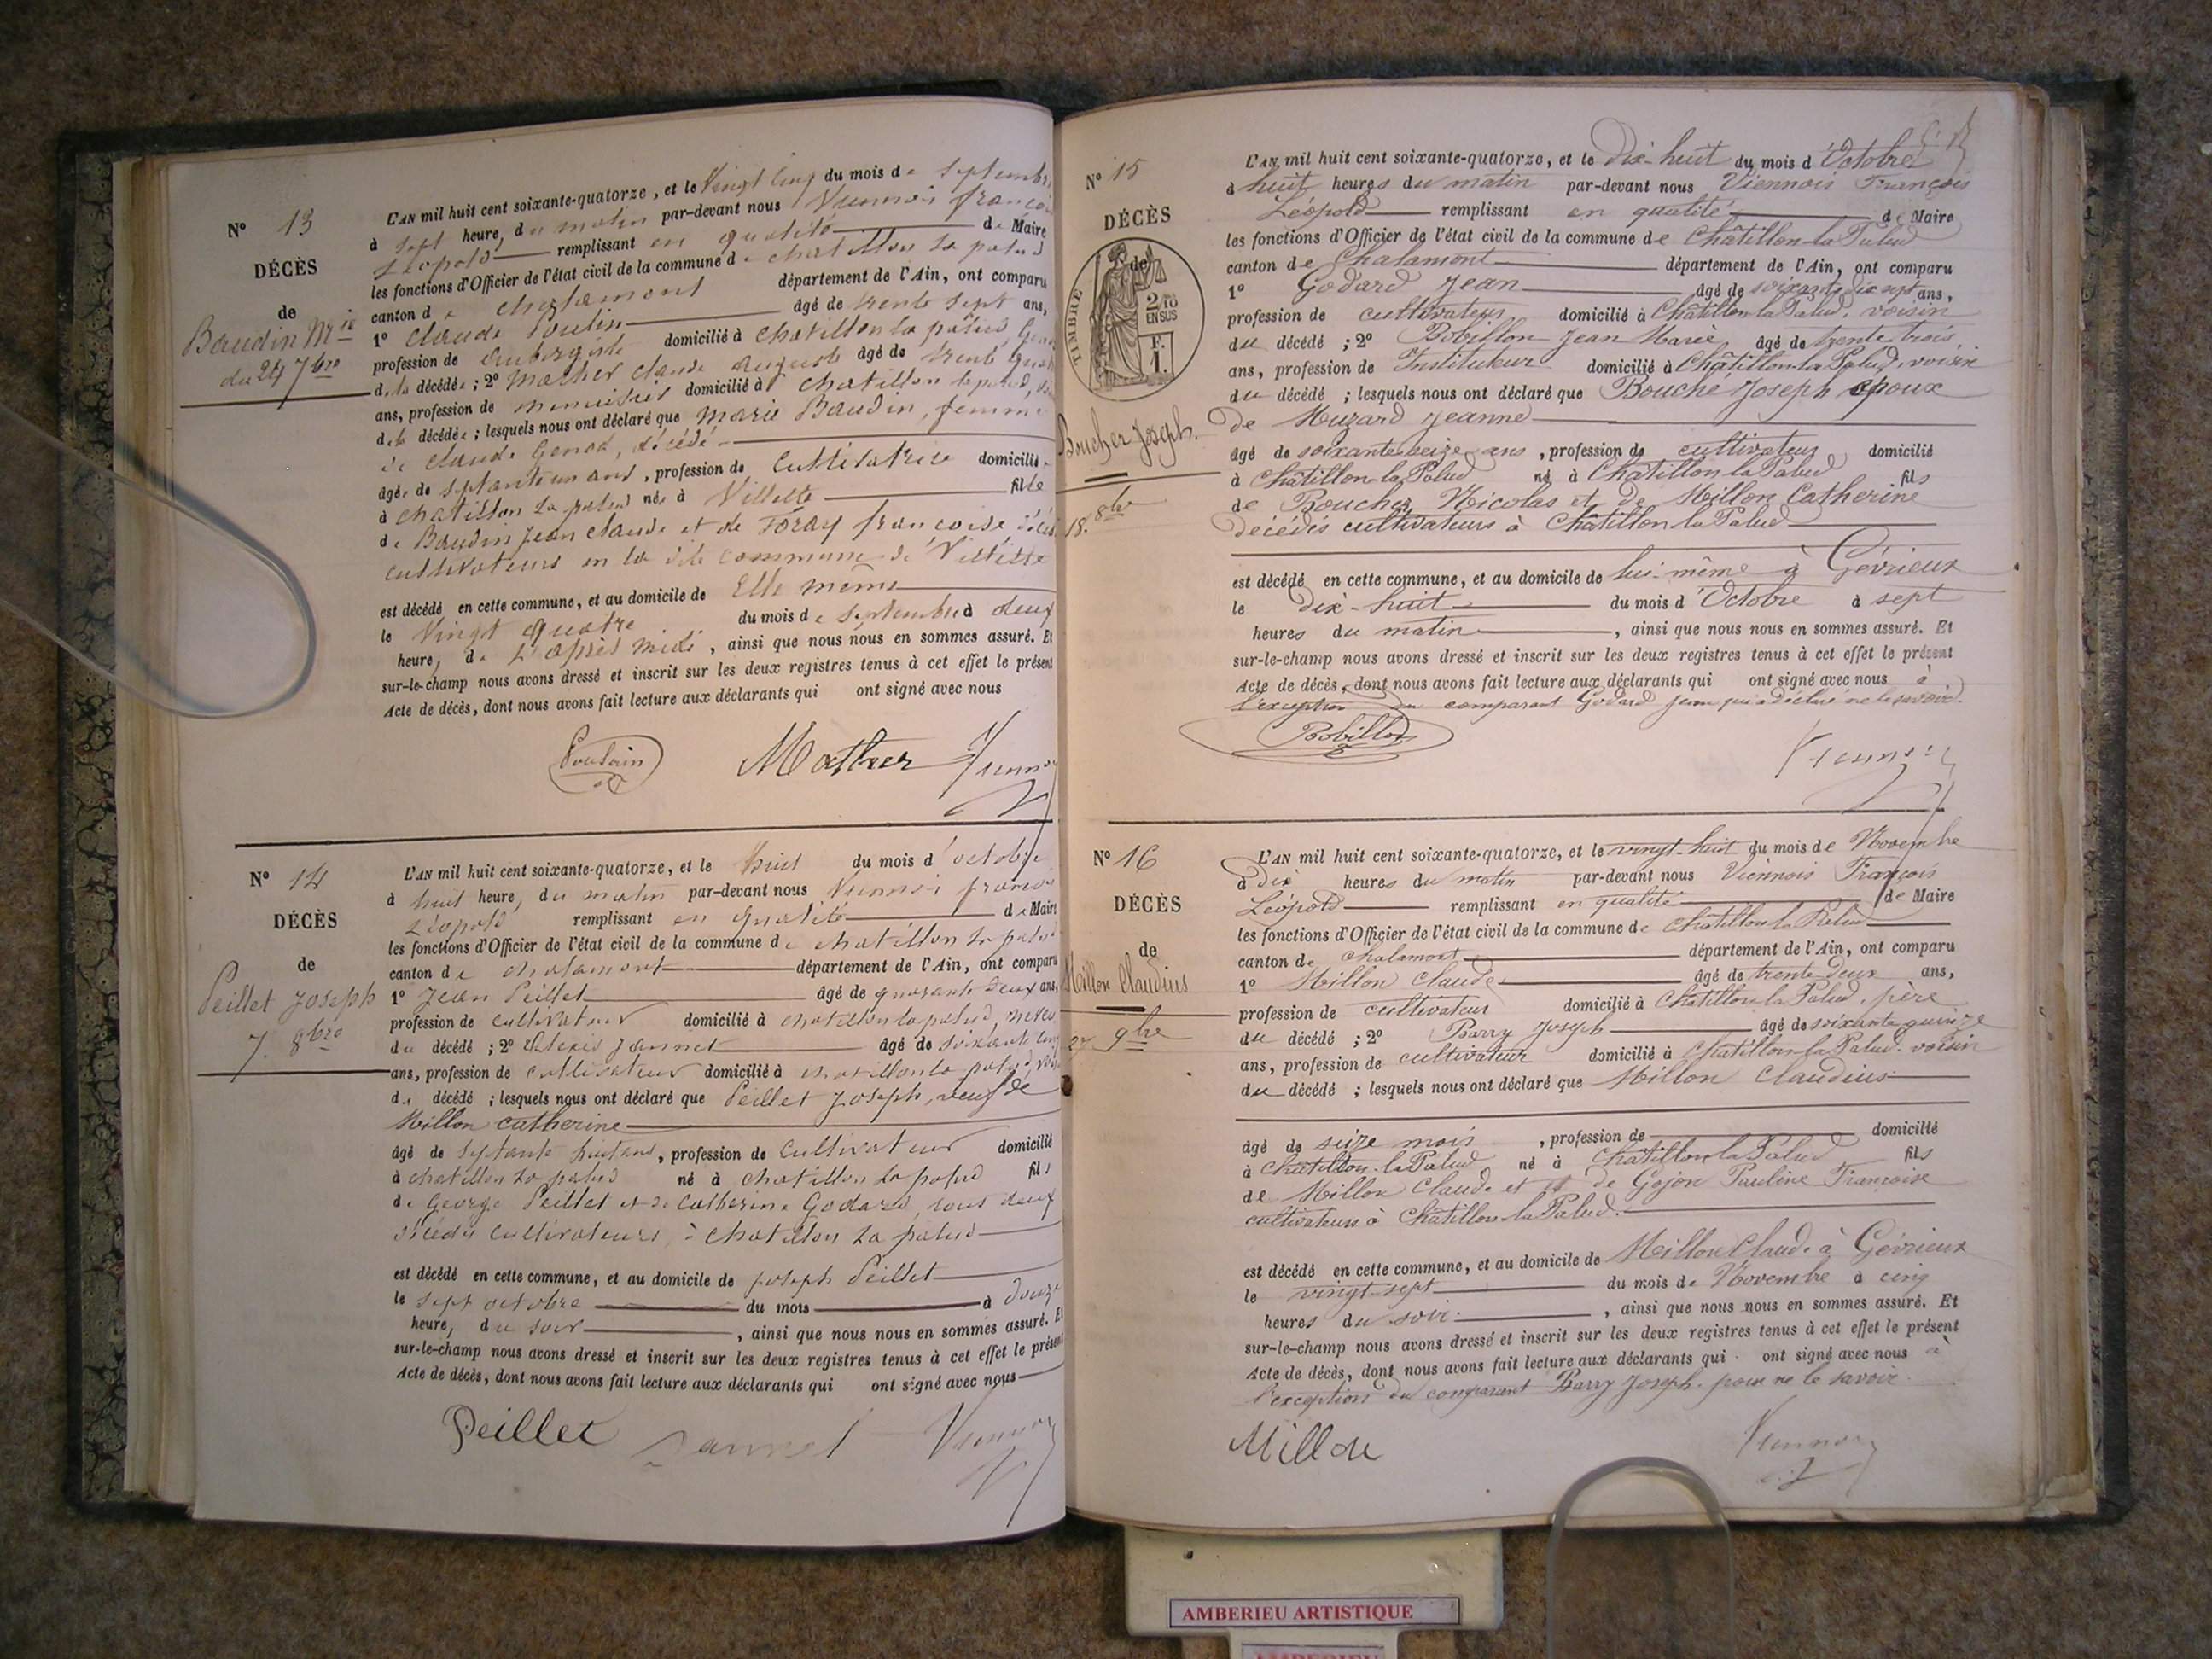 N° 13
DÉCÈS
de
Baudin Mie
du 24 7bre
L'AN mil huit cent soixante-quatorze, et le Vingt Cinq du mois de septembre
à sept heure, du matin par-devant nous Viennois françois
Léopold remplissant en qualité de Maire
les fonctions d'Officier de l'état civil de la commune de chatillon la palud
canton de chalamont département de l'Ain, ont comparu
1° Claude Poulin âgé de trente sept ans,
profession de aubergiste domicilié à chatillon la palud,
de la décédée ; 2° Mather claude auguste âgé de trente
ans, profession de menuisier domicilié à chatillon la palud,
de la décédée ; lesquels nous ont déclaré que marie Baudin, femme
de claude Genod, décédé
âgée de septante un ans, profession de Cultivatrice domicilié
à chatillon la palud née à Villette fille
de Baudin Jean claude et de Foray francoise
cultivateurs en la dite commune de Villette
est décédé en cette commune, et au domicile de Elle même
le Vingt quatre du mois de septembre à deux
heure, de L'après midi, ainsi que nous nous en sommes assuré. Et
sur-le-champ nous avons dressé et inscrit sur les deux registres tenus à cet effet le présent
Acte de décès, dont nous avons fait lecture aux déclarants qui ont signé avec nous
Poulain Mather Viennois
N° 14
DÉCÈS
de
Peillet Joseph
7. 8bre
L'AN mil huit cent soixante-quatorze, et le huit du mois d'octobre
à huit heure, du matin par-devant nous Viennois françois
Léopold remplissant en qualité de Maire
les fonctions d'Officier de l'état civil de la commune de chatillon la palud
canton de chalamont département de l'Ain, ont comparu
1° Jean Peillet âgé de quarante deux ans,
profession de cultivateur domicilié à chatillon la palud, neveu
du décédé ; 2° Jannet âgé de soixante cinq
ans, profession de cultivateur domicilié à chatillon la palud,
du décédé ; lesquels nous ont déclaré que Peillet Joseph, veuf de
Millon catherine
âgé de septante huit ans, profession de Cultivateur domicilié
à chatillon la palud né à chatillon la palud fils
de George Peillet et de Catherine Godard, tous deux
décédés cultivateurs, à chatillon La palud
est décédé en cette commune, et au domicile de joseph Peillet
le sept octobre du mois à douze
heure, du soir, ainsi que nous nous en sommes assuré. Et
sur-le-champ nous avons dressé et inscrit sur les deux registres tenus à cet effet le présent
Acte de décès, dont nous avons fait lecture aux déclarants qui ont signé avec nous
Peillet Jannet Viennois
N° 15
DÉCÈS
de
TIMBRE
2/10
EN SUS
F.
1.
Boucher Joseph.
18. 8bre
L'AN mil huit cent soixante-quatorze, et le dix-huit du mois d'Octobre
à huit heures du matin par-devant nous Viennois François
Léopold remplissant en qualité de Maire
les fonctions d'Officier de l'état civil de la commune de Châtillon-la-Palud
canton de Chalamont département de l'Ain, ont comparu
1° Godard Jean âgé de soixante dix sept ans,
profession de cultivateur domicilié à Châtillon la Palud, voisin
du décédé ; 2° Bobillon Jean Marie âgé de trente trois
ans, profession de Instituteur domicilié à Châtillon la Palud, voisin
du décédé ; lesquels nous ont déclaré que Boucher Joseph époux
de Muzard Jeanne
âgé de soixante-seize ans, profession de cultivateur domicilié
à Châtillon la Palud né à Châtillon la Palud fils
de Boucher Nicolas et de Millon Catherine
décédés cultivateurs à Châtillon la Palud
est décédé en cette commune, et au domicile de lui-même à Gévrieux
le dix-huit du mois d'Octobre à sept
heures du matin, ainsi que nous nous en sommes assuré. Et
sur-le-champ nous avons dressé et inscrit sur les deux registres tenus à cet effet le présent
Acte de décès, dont nous avons fait lecture aux déclarants qui ont signé avec nous à
l'exception du comparant Godard Jean qui a déclaré ne le savoir.
Bobillon Viennois
N° 16
DÉCÈS
de
Millon Claudius
27 9bre
L'AN mil huit cent soixante-quatorze, et le vingt-huit du mois de Novembre
à dix heures du matin par-devant nous Viennois François
Léopold remplissant en qualité de Maire
les fonctions d'Officier de l'état civil de la commune de Châtillon la Palud
canton de Chalamont département de l'Ain, ont comparu
1° Millon Claude âgé de trente deux ans,
profession de cultivateur domicilié à Châtillon la Palud, père
du décédé ; 2° Barry Joseph âgé de soixante quinze
ans, profession de cultivateur domicilié à Châtillon la Palud, voisin
du décédé ; lesquels nous ont déclaré que Millon Claudius
âgé de seize mois, profession de domicilié
à Châtillon-la-Palud né à Châtillon la Palud fils
de Millon Claude et de Gojon Pauline Françoise
cultivateurs à Châtillon la Palud.
est décédé en cette commune, et au domicile de Millon Claude à Gévrieux
le vingt-sept du mois de Novembre à cinq
heures du soir, ainsi que nous nous en sommes assuré. Et
sur-le-champ nous avons dressé et inscrit sur les deux registres tenus à cet effet le présent
Acte de décès, dont nous avons fait lecture aux déclarants qui ont signé avec nous à
l'exception du comparant Barry Joseph pour ne le savoir.
Millon Viennois
AMBERIEU ARTISTIQUE
AMBERIEU